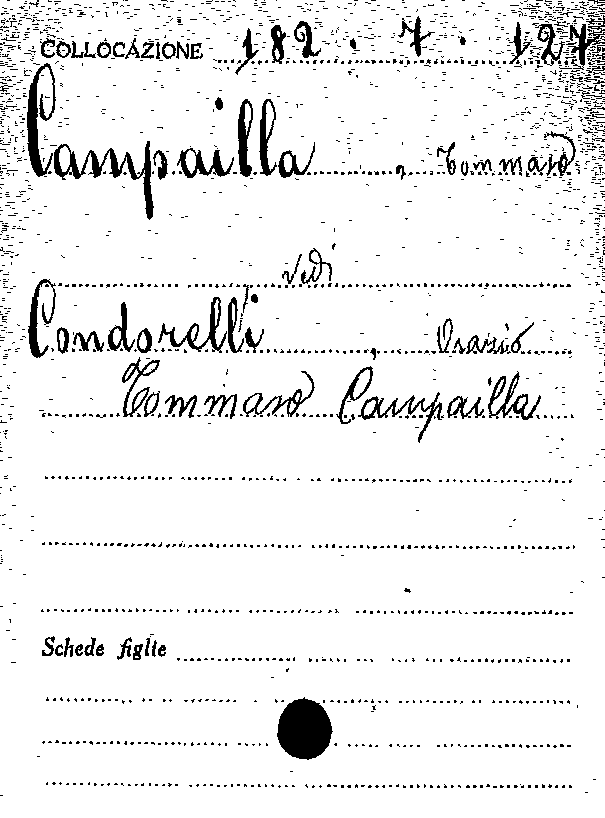 COLLOCAZIONE 182 . 7 . 127
Campailla , Tommaso
vedi
Condorelli , Orazio
Tommaso Campailla
Schede figlie